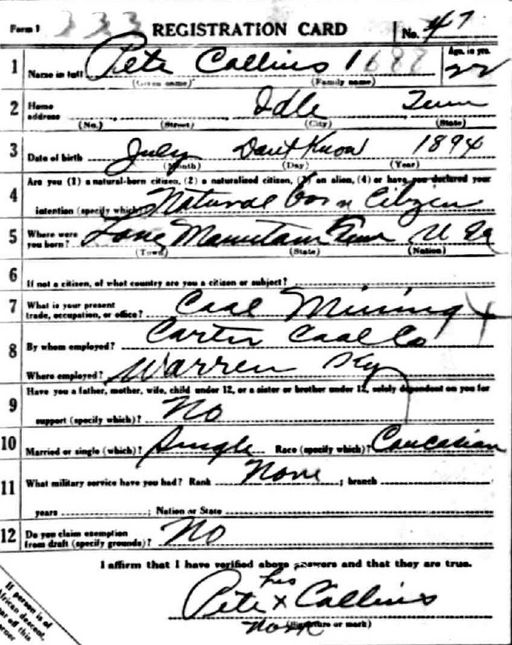 Form 1 333 REGISTRATION CARD No. 47
1 Name in full Pete Collins 1687 Age, in yrs. 22
(Given name) (Family name)
2 Home address Idle Tenn
(No.) (Street) (City) (State)
3 Date of birth July Dont Know 1894
(Month) (Day) (Year)
Are you (1) a natural-born citizen, (2) a naturalized citizen, (3) an alien, (4) or have you declared your
4 intention (specify which)? Natural Born Citizen
5 Where were you born? Lone Mountain Tenn U Sa
(Town) (State) (Nation)
6 If not a citizen, of what country are you a citizen or subject?
7 What is your present trade, occupation, or office? Coal Mining
8 By whom employed? Carter Coal Co
Where employed? Warren Ky
Have you a father, mother, wife, child under 12, or a sister or brother under 12, solely dependent on you for
9 support (specify which)? No
10 Married or single (which)? Single Race (specify which)? Caucasian
11 What military service have you had? Rank None ; branch
years ; Nation or State
12 Do you claim exemption from draft (specify grounds)? No
I affirm that I have verified above answers and that they are true.
his
Pete x Collins
(Signature or mark)
mark
If person is of
African descent,
off this
corner